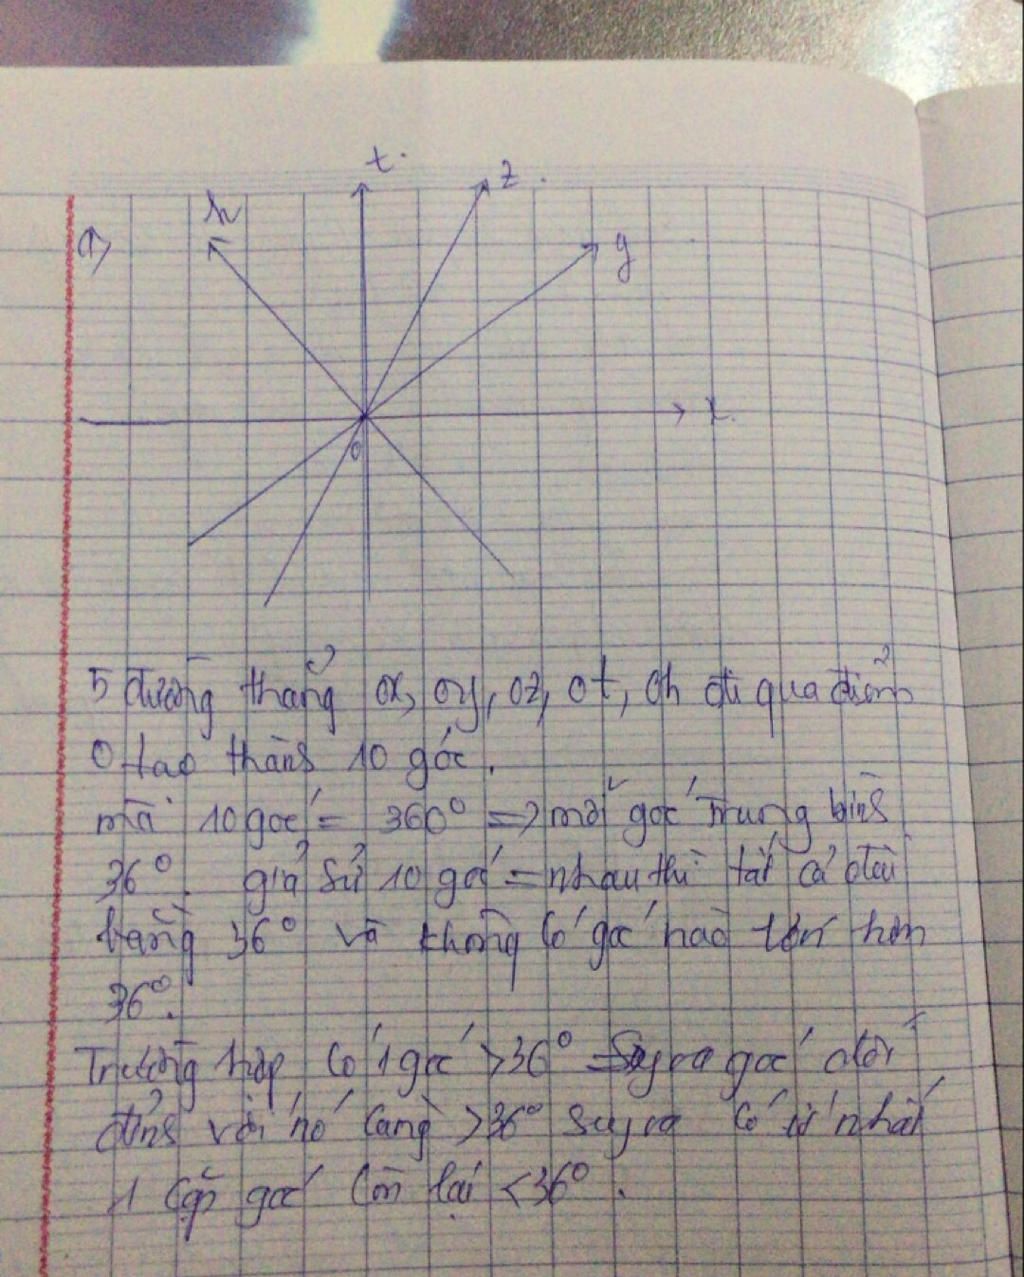 t.
z.
h
a)
y
x.
O
5 đường thẳng ox, oy, oz, ot, oh đi qua điểm
O tạo thành 10 góc.
mà 10 góc = 360° => mỗi góc trung bình
36°. giả sử 10 góc = nhau thì tất cả đều
bằng 36° và không có góc nào lớn hơn
36°.
Trường hợp có 1 góc >36° suy ra góc đối
đỉnh với nó cũng >36° suy ra có ít nhất
1 cặp góc còn lại <36°.